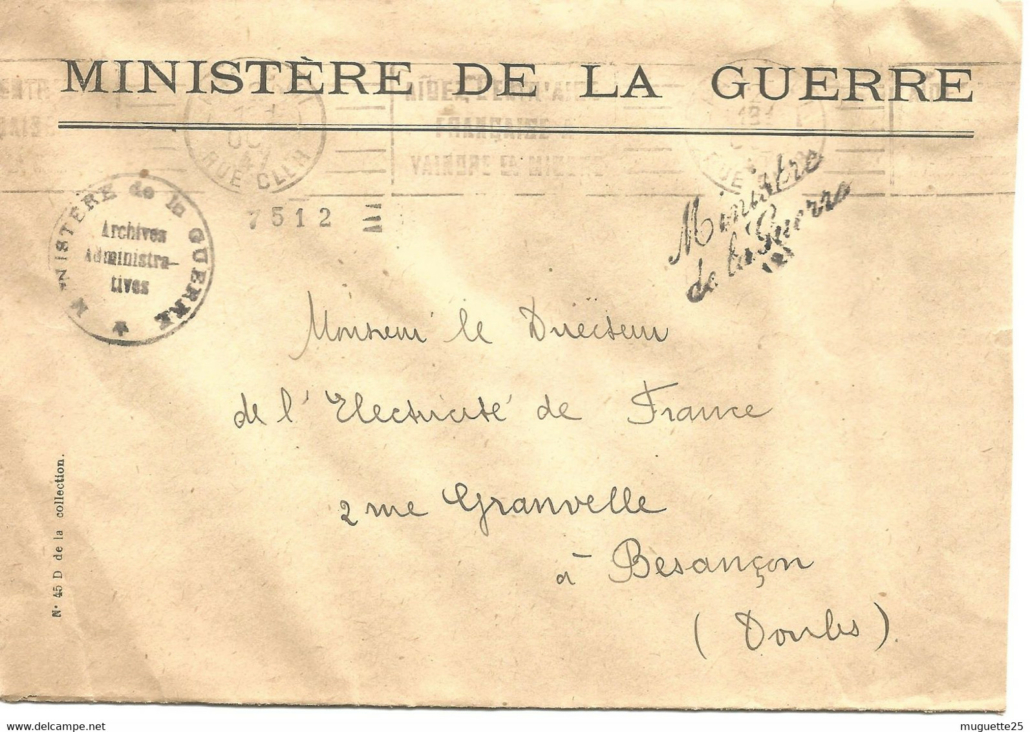 MINISTÈRE DE LA GUERRE
RUE CLER
7512
MINISTÈRE de la GUERRE
Archives
Administra-
tives
Ministre
de la Guerre
Monsieur le Directeur
de l'Electricité de France
2 rue Granvelle
à Besançon
(Doubs)
N° 45 D de la collection.
www.delcampe.net
muguette25